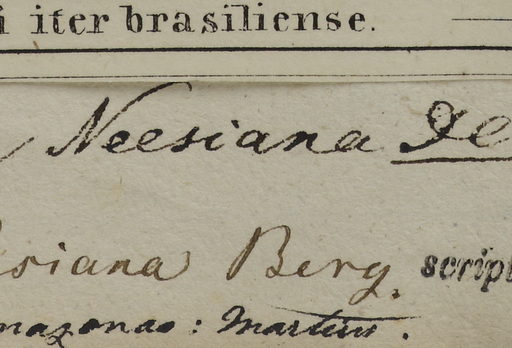 i iter brasiliense.
Neesiana De
esiana Berg. script
mazonas: Martius.